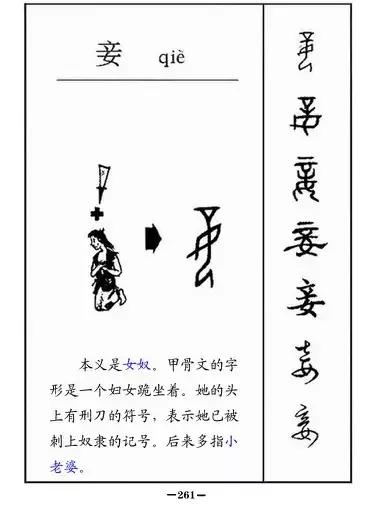 妾 qiè
本义是女奴。甲骨文的字
形是一个妇女跪坐着。她的头
上有刑刀的符号，表示她已被
刺上奴隶的记号。后来多指小
老婆。
妾
妾
妾
妾
妾
妾
妾
—261—